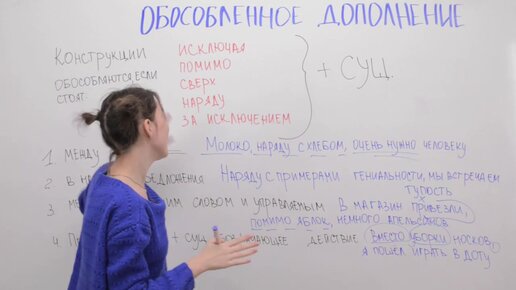 ОБОСОБЛЕННОЕ ДОПОЛНЕНИЕ
КОНСТРУКЦИИ
ОБОСОБЛЯЮТСЯ, ЕСЛИ
СТОЯТ:
ИСКЛЮЧАЯ
ПОМИМО
СВЕРХ
НАРЯДУ
ЗА ИСКЛЮЧЕНИЕМ
+ СУЩ.
1 МЕЖДУ
МОЛОКО, НАРЯДУ С ХЛЕБОМ, ОЧЕНЬ НУЖНО ЧЕЛОВЕКУ
2 В
НАРЯДУ С ПРИМЕРАМИ ГЕНИАЛЬНОСТИ, МЫ ВСТРЕЧАЕМ
ТУПОСТЬ
3 СЛОВОМ И УПРАВЛЯЕМЫМ В МАГАЗИН ПРИВЕЗЛИ,
ПОМИМО ЯБЛОК, НЕМНОГО АПЕЛЬСИНОВ
4 + СУЩ ДЕЙСТВИЕ ВМЕСТО УБОРКИ НОСКОВ,
Я ПОШЁЛ ИГРАТЬ В ДОТУ